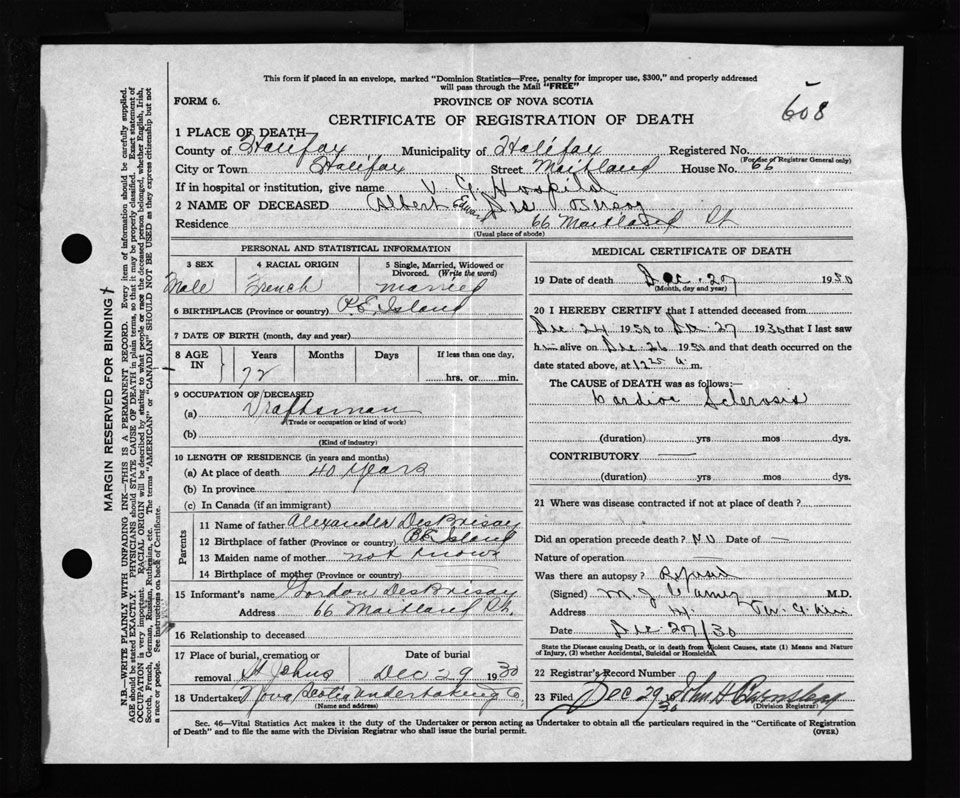 This form if placed in an envelope, marked "Dominion Statistics—Free, penalty for improper use, $300," and properly addressed
will pass through the Mail "FREE"
FORM 6.
PROVINCE OF NOVA SCOTIA
608
CERTIFICATE OF REGISTRATION OF DEATH
1 PLACE OF DEATH
County of Halifax Municipality of Halifax Registered No.
(For use of Registrar General only)
City or Town Halifax Street Maitland House No. 66
If in hospital or institution, give name V. G. Hospital
2 NAME OF DECEASED Albert Edward Des Brisay
Residence 66 Maitland St
(Usual place of abode)
PERSONAL AND STATISTICAL INFORMATION
3 SEX 4 RACIAL ORIGIN 5 Single, Married, Widowed or
Divorced. (Write the word)
Male French married
6 BIRTHPLACE (Province or country) P.E. Island
7 DATE OF BIRTH (month, day and year)
8 AGE IN Years Months Days If less than one day,
72 hrs. or min.
9 OCCUPATION OF DECEASED
(a) Draftsman
(Trade or occupation or kind of work)
(b)
(Kind of industry)
10 LENGTH OF RESIDENCE (in years and months)
(a) At place of death 40 years
(b) In province
(c) In Canada (if an immigrant)
Parents
11 Name of father Alexander DesBrisay
12 Birthplace of father (Province or country) P.E. Island
13 Maiden name of mother not known
14 Birthplace of mother (Province or country)
15 Informant's name Gordon DesBrisay
Address 66 Maitland St.
16 Relationship to deceased
17 Place of burial, cremation or Date of burial
removal St Johns Dec 29 1930
18 Undertaker Nova Scotia Undertaking Co
(Name and address)
MEDICAL CERTIFICATE OF DEATH
19 Date of death Dec. 27 1930
(Month, day and year)
20 I HEREBY CERTIFY that I attended deceased from
Dec 24 1930 to Dec. 27 1930 that I last saw
him alive on Dec 26 1930 and that death occurred on the
date stated above, at 12 25 a. m.
The CAUSE of DEATH was as follows:
Cardiac Sclerosis
(duration) yrs mos dys.
CONTRIBUTORY
(duration) yrs mos dys.
21 Where was disease contracted if not at place of death?
Did an operation precede death? No Date of
Nature of operation
Was there an autopsy? Refused
(Signed) M. J. M.D.
Address
Date Dec 27/30
State the Disease causing Death, or in death from Violent Causes, state (1) Means and Nature
of Injury, (2) whether Accidental, Suicidal or Homicidal.
22 Registrar's Record Number
23 Filed Dec 29 1930 John H
(Division Registrar)
Sec. 46—Vital Statistics Act makes it the duty of the Undertaker or person acting as Undertaker to obtain all the particulars required in the "Certificate of Registration
of Death" and to file the same with the Division Registrar who shall issue the burial permit.
(OVER)
MARGIN RESERVED FOR BINDING
N.B.—WRITE PLAINLY WITH UNFADING INK—THIS IS A PERMANENT RECORD. Every item of information should be carefully supplied.
AGE should be stated EXACTLY. PHYSICIANS should STATE CAUSE OF DEATH in plain terms, so that it may be properly classified. Exact statement of
OCCUPATION is very important. RACIAL ORIGIN will be described by stating to what people or race the deceased person belonged, whether English, Irish,
Scotch, French, German, Russian, Ruthenian, etc. The terms "AMERICAN" or "CANADIAN" SHOULD NOT BE USED as they express citizenship but not
a race or people. See instructions on back of Certificate.